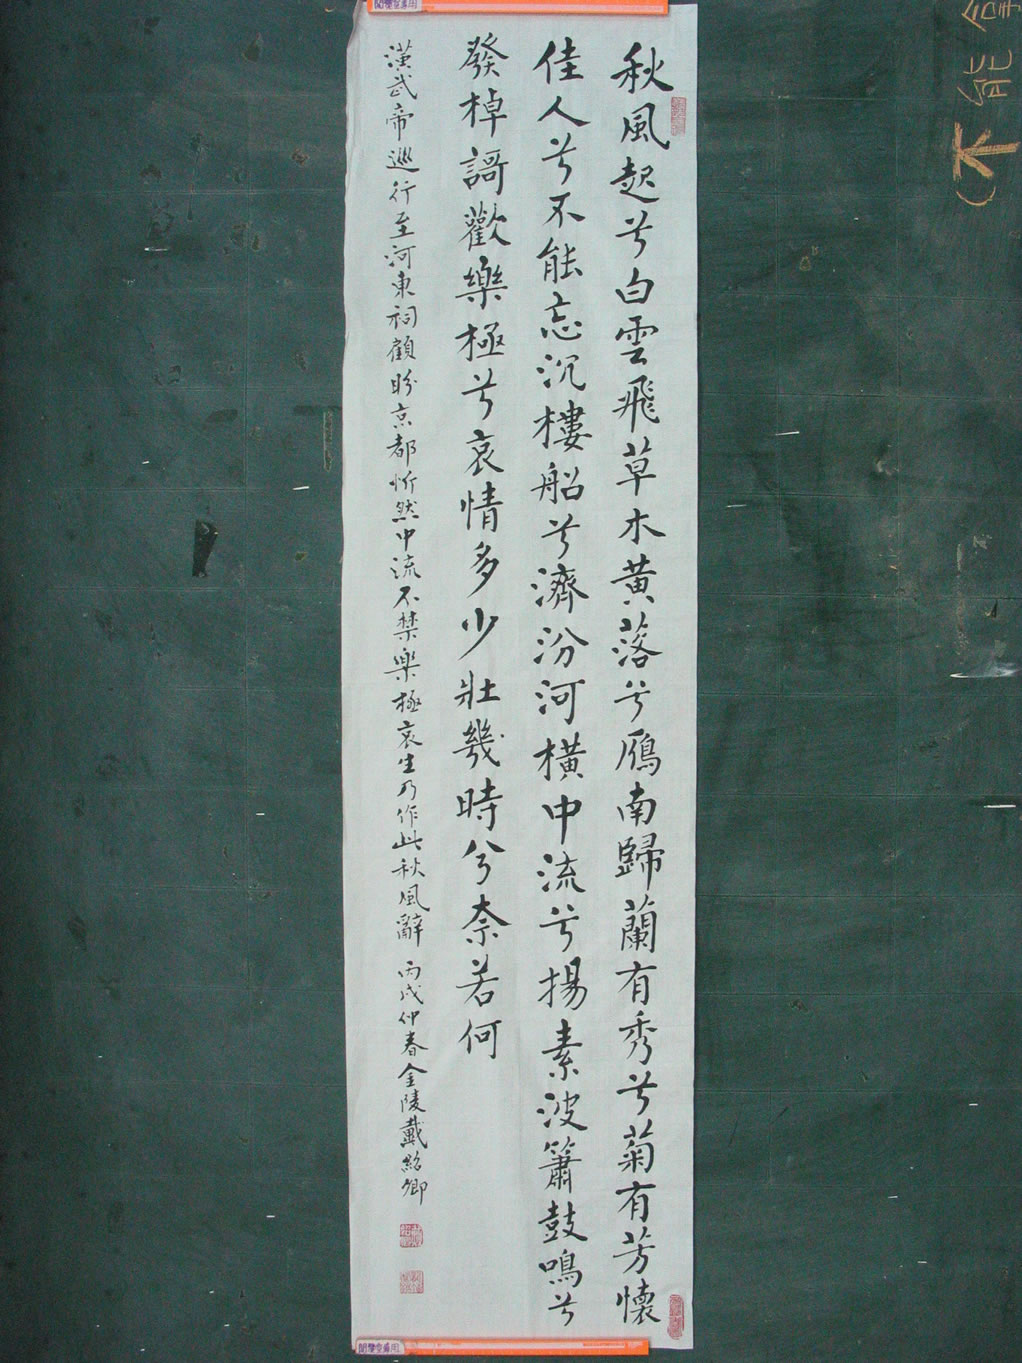 秋風起兮白雲飛草木黃落兮鴈南歸蘭有秀兮菊有芳懷
佳人兮不能忘沉樓船兮濟汾河橫中流兮揚素波簫鼓鳴兮
發棹謌歡樂極兮哀情多少壯幾時兮奈若何
漢武帝巡行至河東祠顧盼京都忻然中流不禁樂極哀生乃作此秋風辭 丙戌仲春金陵戴紹卿
不能